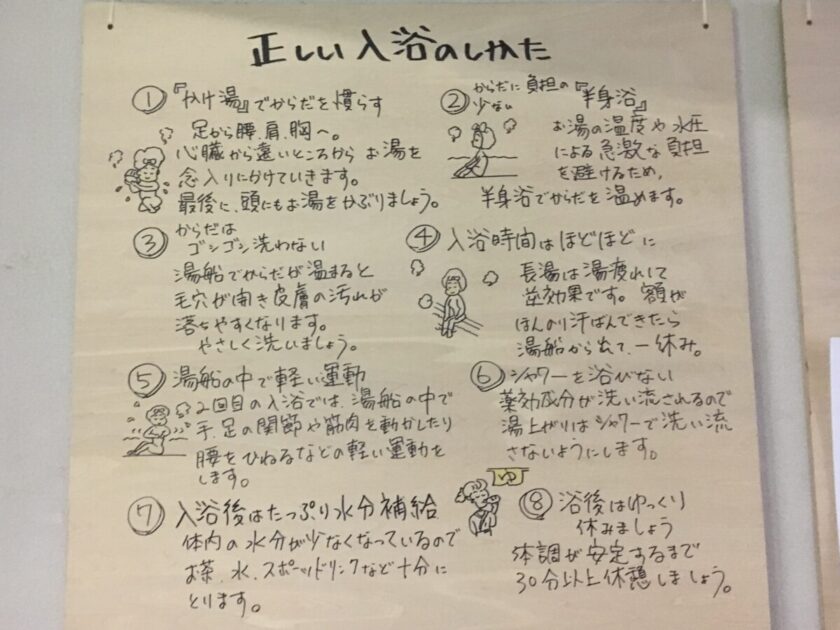 正しい入浴のしかた
① 『かけ湯』でからだを慣らす
足から腰、肩、胸へ。
心臓から遠いところからお湯を
念入りにかけていきます。
最後に、頭にもお湯をかぶりましょう。
② からだに負担の
少ない『半身浴』
お湯の温度や水圧
による急激な負担
を避けるため、
半身浴でからだを温めます。
③ からだは
ゴシゴシ洗わない
湯船でからだが温まると
毛穴が開き皮膚の汚れが
落ちやすくなります。
やさしく洗いましょう。
④ 入浴時間はほどほどに
長湯は湯疲れして
逆効果です。額が
ほんのり汗ばんできたら
湯船から出て、一休み。
⑤ 湯船の中で軽い運動
2回目の入浴では、湯船の中で
手、足の関節や筋肉を動かしたり
腰をひねるなどの軽い運動を
します。
⑥ シャワーを浴びない
薬効成分が洗い流されるので
湯上がりはシャワーで洗い流
さないようにします。
⑦ 入浴後はたっぷり水分補給
体内の水分が少なくなっているので
お茶、水、スポーツドリンクなど十分に
とります。
ゆ
⑧ 浴後はゆっくり
休みましょう
体調が安定するまで
30分以上休憩しましょう。